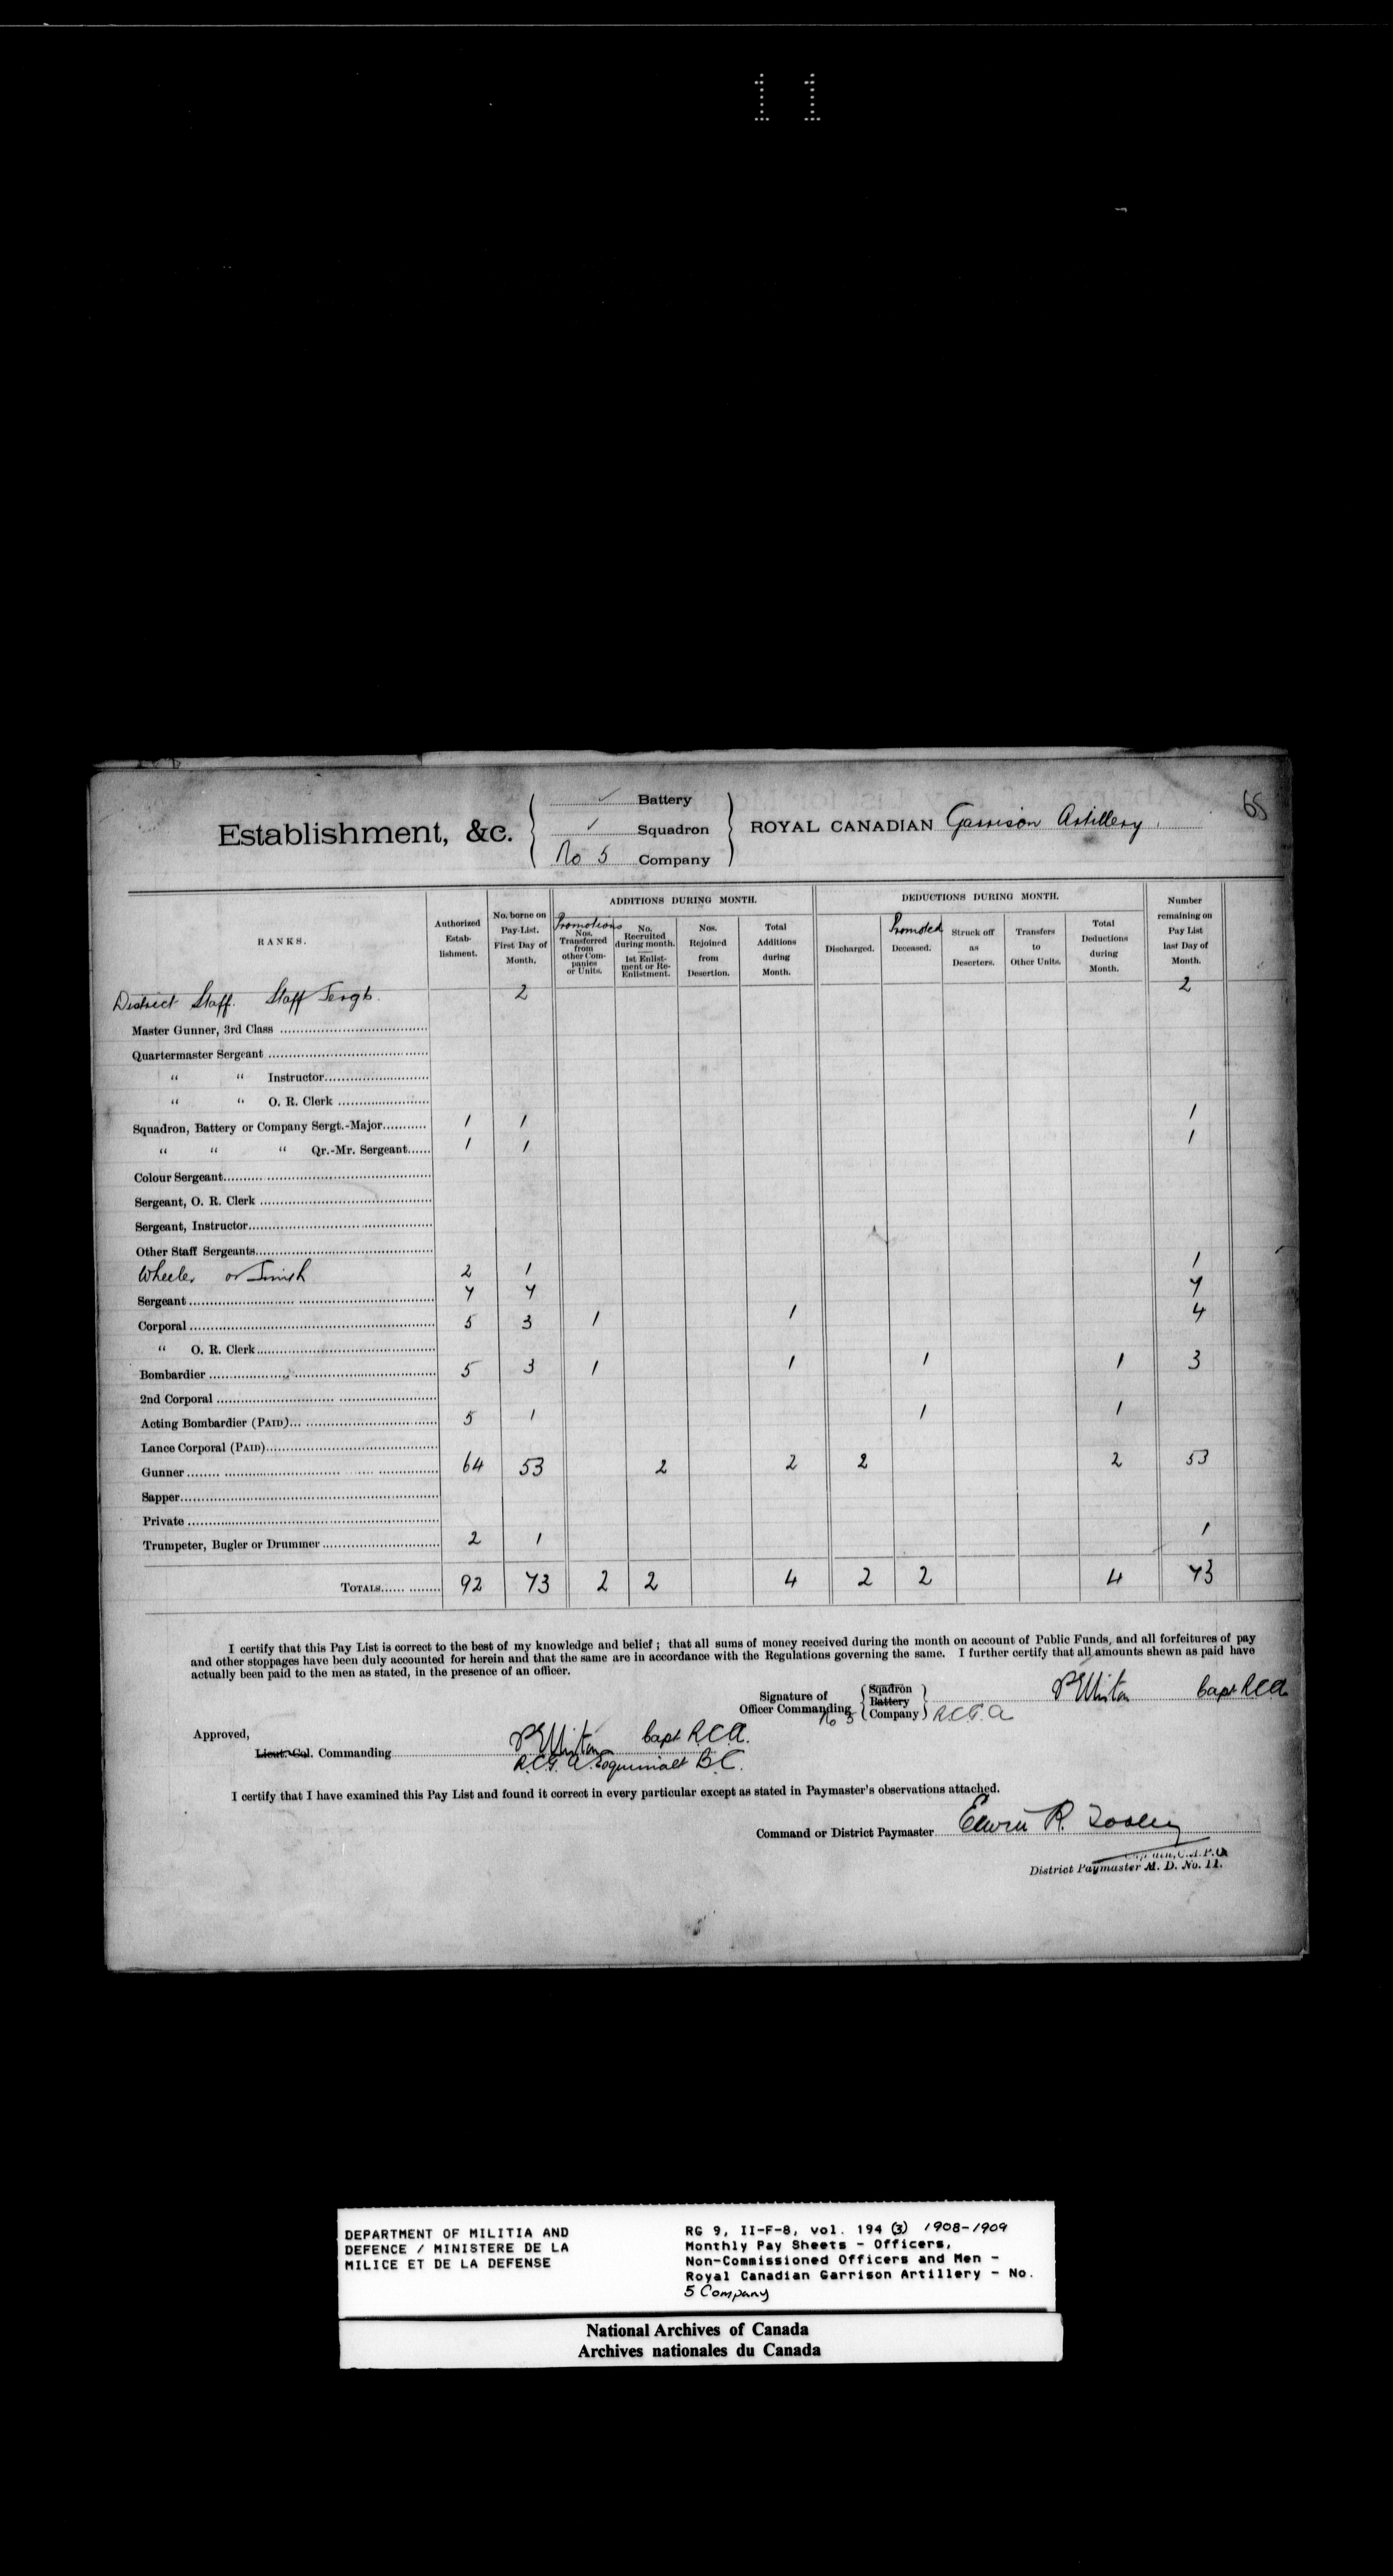 11
65
Establishment, &c. { Battery
Squadron
No 5 Company } ROYAL CANADIAN Garrison Artillery
RANKS. | Authorized Establishment. | No. borne on Pay-List. First Day of Month. | ADDITIONS DURING MONTH. | DEDUCTIONS DURING MONTH. | Number remaining on Pay List last Day of Month.
Promotions Nos. Transferred from other Companies or Units. | No. Recruited during month. 1st Enlistment or Re-Enlistment. | Nos. Rejoined from Desertion. | Total Additions during Month. | Discharged. | Promoted Deceased. | Struck off as Deserters. | Transfers to Other Units. | Total Deductions during Month.
District Staff. Staff Sergts. 2 2
Master Gunner, 3rd Class
Quartermaster Sergeant
" " Instructor
" " O. R. Clerk
Squadron, Battery or Company Sergt.-Major 1 1 1
" " " Qr.-Mr. Sergeant 1 1 1
Colour Sergeant
Sergeant, O. R. Clerk
Sergeant, Instructor
Other Staff Sergeants
Wheeler or Smith 2 1 1
Sergeant 7 7 7
Corporal 5 3 1 1 4
" O. R. Clerk
Bombardier 5 3 1 1 1 1 3
2nd Corporal
Acting Bombardier (PAID) 5 1 1 1
Lance Corporal (PAID)
Gunner 64 53 2 2 2 2 53
Sapper
Private
Trumpeter, Bugler or Drummer 2 1 1
TOTALS 92 73 2 2 4 2 2 4 73
I certify that this Pay List is correct to the best of my knowledge and belief; that all sums of money received during the month on account of Public Funds, and all forfeitures of pay
and other stoppages have been duly accounted for herein and that the same are in accordance with the Regulations governing the same. I further certify that all amounts shewn as paid have
actually been paid to the men as stated, in the presence of an officer.
Signature of Officer Commanding No 5 { Sqadron
Battery
Company } R.C.G.A Capt R.C.A.
Approved,
Lieut.-Col. Commanding Capt R.C.A.
R.C.G.A. Esquimalt B.C.
I certify that I have examined this Pay List and found it correct in every particular except as stated in Paymaster's observations attached.
Command or District Paymaster Edwin R. Tooley
District Paymaster M. D. No. 11.
DEPARTMENT OF MILITIA AND
DEFENCE / MINISTERE DE LA
MILICE ET DE LA DEFENSE
RG 9, II-F-8, vol. 194 (3) 1908-1909
Monthly Pay Sheets - Officers,
Non-Commissioned Officers and Men -
Royal Canadian Garrison Artillery - No.
5 Company
National Archives of Canada
Archives nationales du Canada